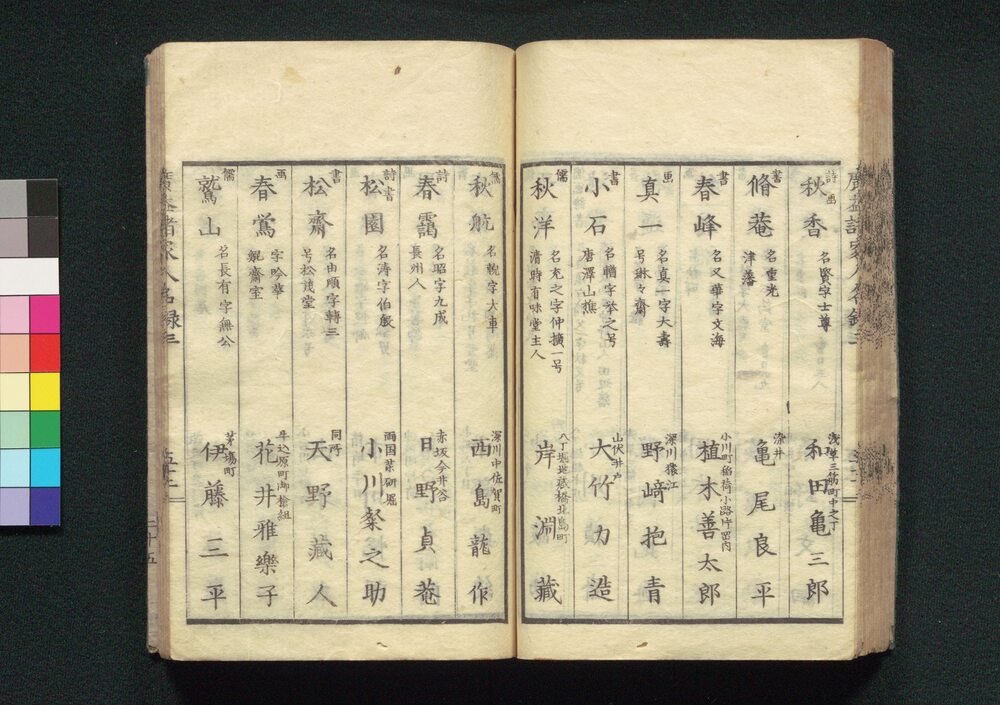 詩画
秋香
名賢字士尊
浅草三筋町中之丁
和田亀三郎
脩菴
名重光
津藩
染井
亀尾良平
書
春峰
名又華字文海
小川町稲荷小路片岡内
植木善太郎
画
真一
名真一字大壽
号琳々齋
深川猿江
野﨑抱青
書
小石
名楢字挙之号
唐澤山樵
山伏井戸
大竹力造
儒
秋洋
名充之字仲擴一号
清時有味堂主人
八丁堀地蔵橋北島町
岸淵藏
儒
秋航
名輗字大車
深川中佐賀町
西島龍作
詩
春靄
名昭字九成
長州人
赤坂今井谷
日野貞菴
詩書
松園
名濤字伯殷
両国薬研堀
小川粲之助
書
松齋
名由順字轉三
号松茂堂
同所
天野藏人
画
春鶯
字吟華
観齋室
牛込原町御槍組
花井雅樂子
儒
鷲山
名長有字無公
茅場町
伊藤三平